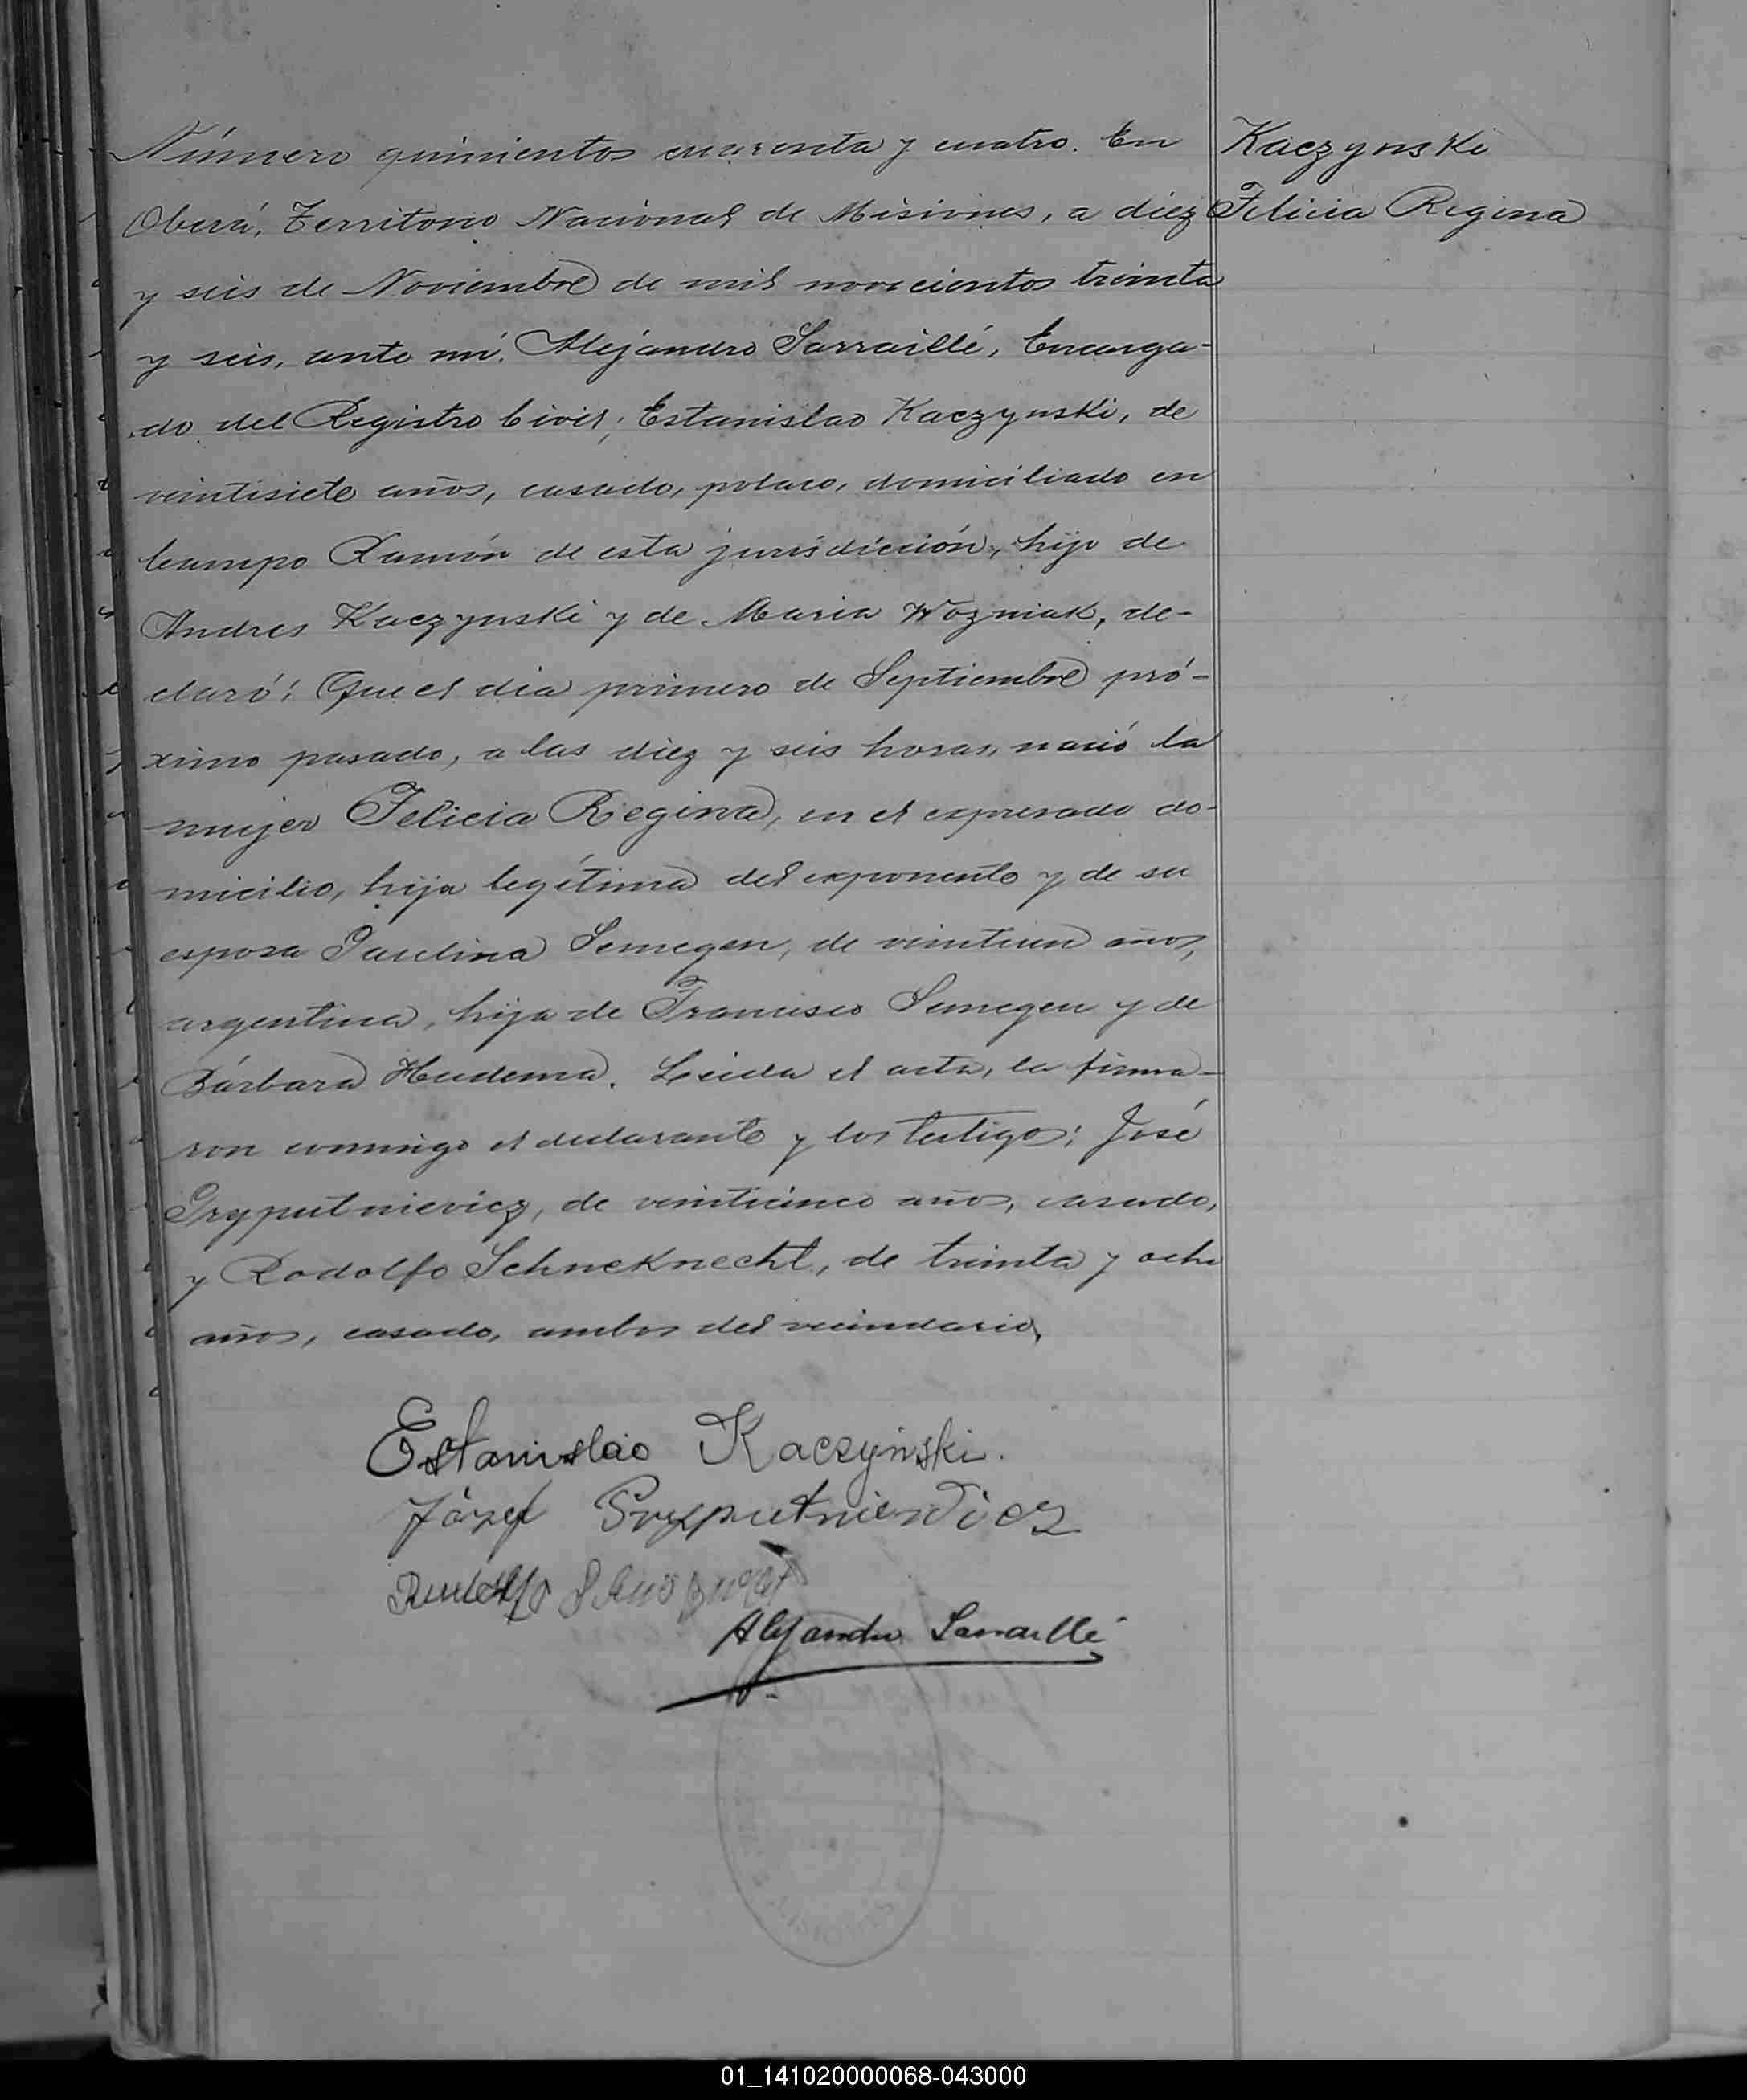 Número quinientos cuarenta y cuatro. En
Oberá, Territorio Nacional de Misiones, a diez
y seis de Noviembre de mil novecientos treinta
y seis, ante mí, Alejandro Sarraillé, Encarga-
do del Registro Civil; Estanislao Kaczynski, de
veintisiete años, casado, polaco, domiciliado en
Campo Ramón de esta jurisdicción, hijo de
Andres Kaczynski y de Maria Wozniak, de-
claró: Que el dia primero de Septiembre pró-
ximo pasado, a las diez y seis horas, nació la
mujer Felicia Regina, en el expresado do-
micilio, hija legítima del exponente y de su
esposa Paulina Semegen, de veintiun años,
argentina, hija de Francisco Semegen y de
Bárbara Hudema. Leida el acta, la firma-
ron conmigo el declarante y los testigos: José
Pryputnievicz, de veinticinco años, casado,
y Rodolfo Schneknecht, de treinta y ocho
años, casado, ambos del vecindario.
Estanislao Kaczyński.
Józef Pryputniewicz
Alejandro Sarraillé
Kaczynski
Felicia Regina
MISIONES
01_141020000068-043000